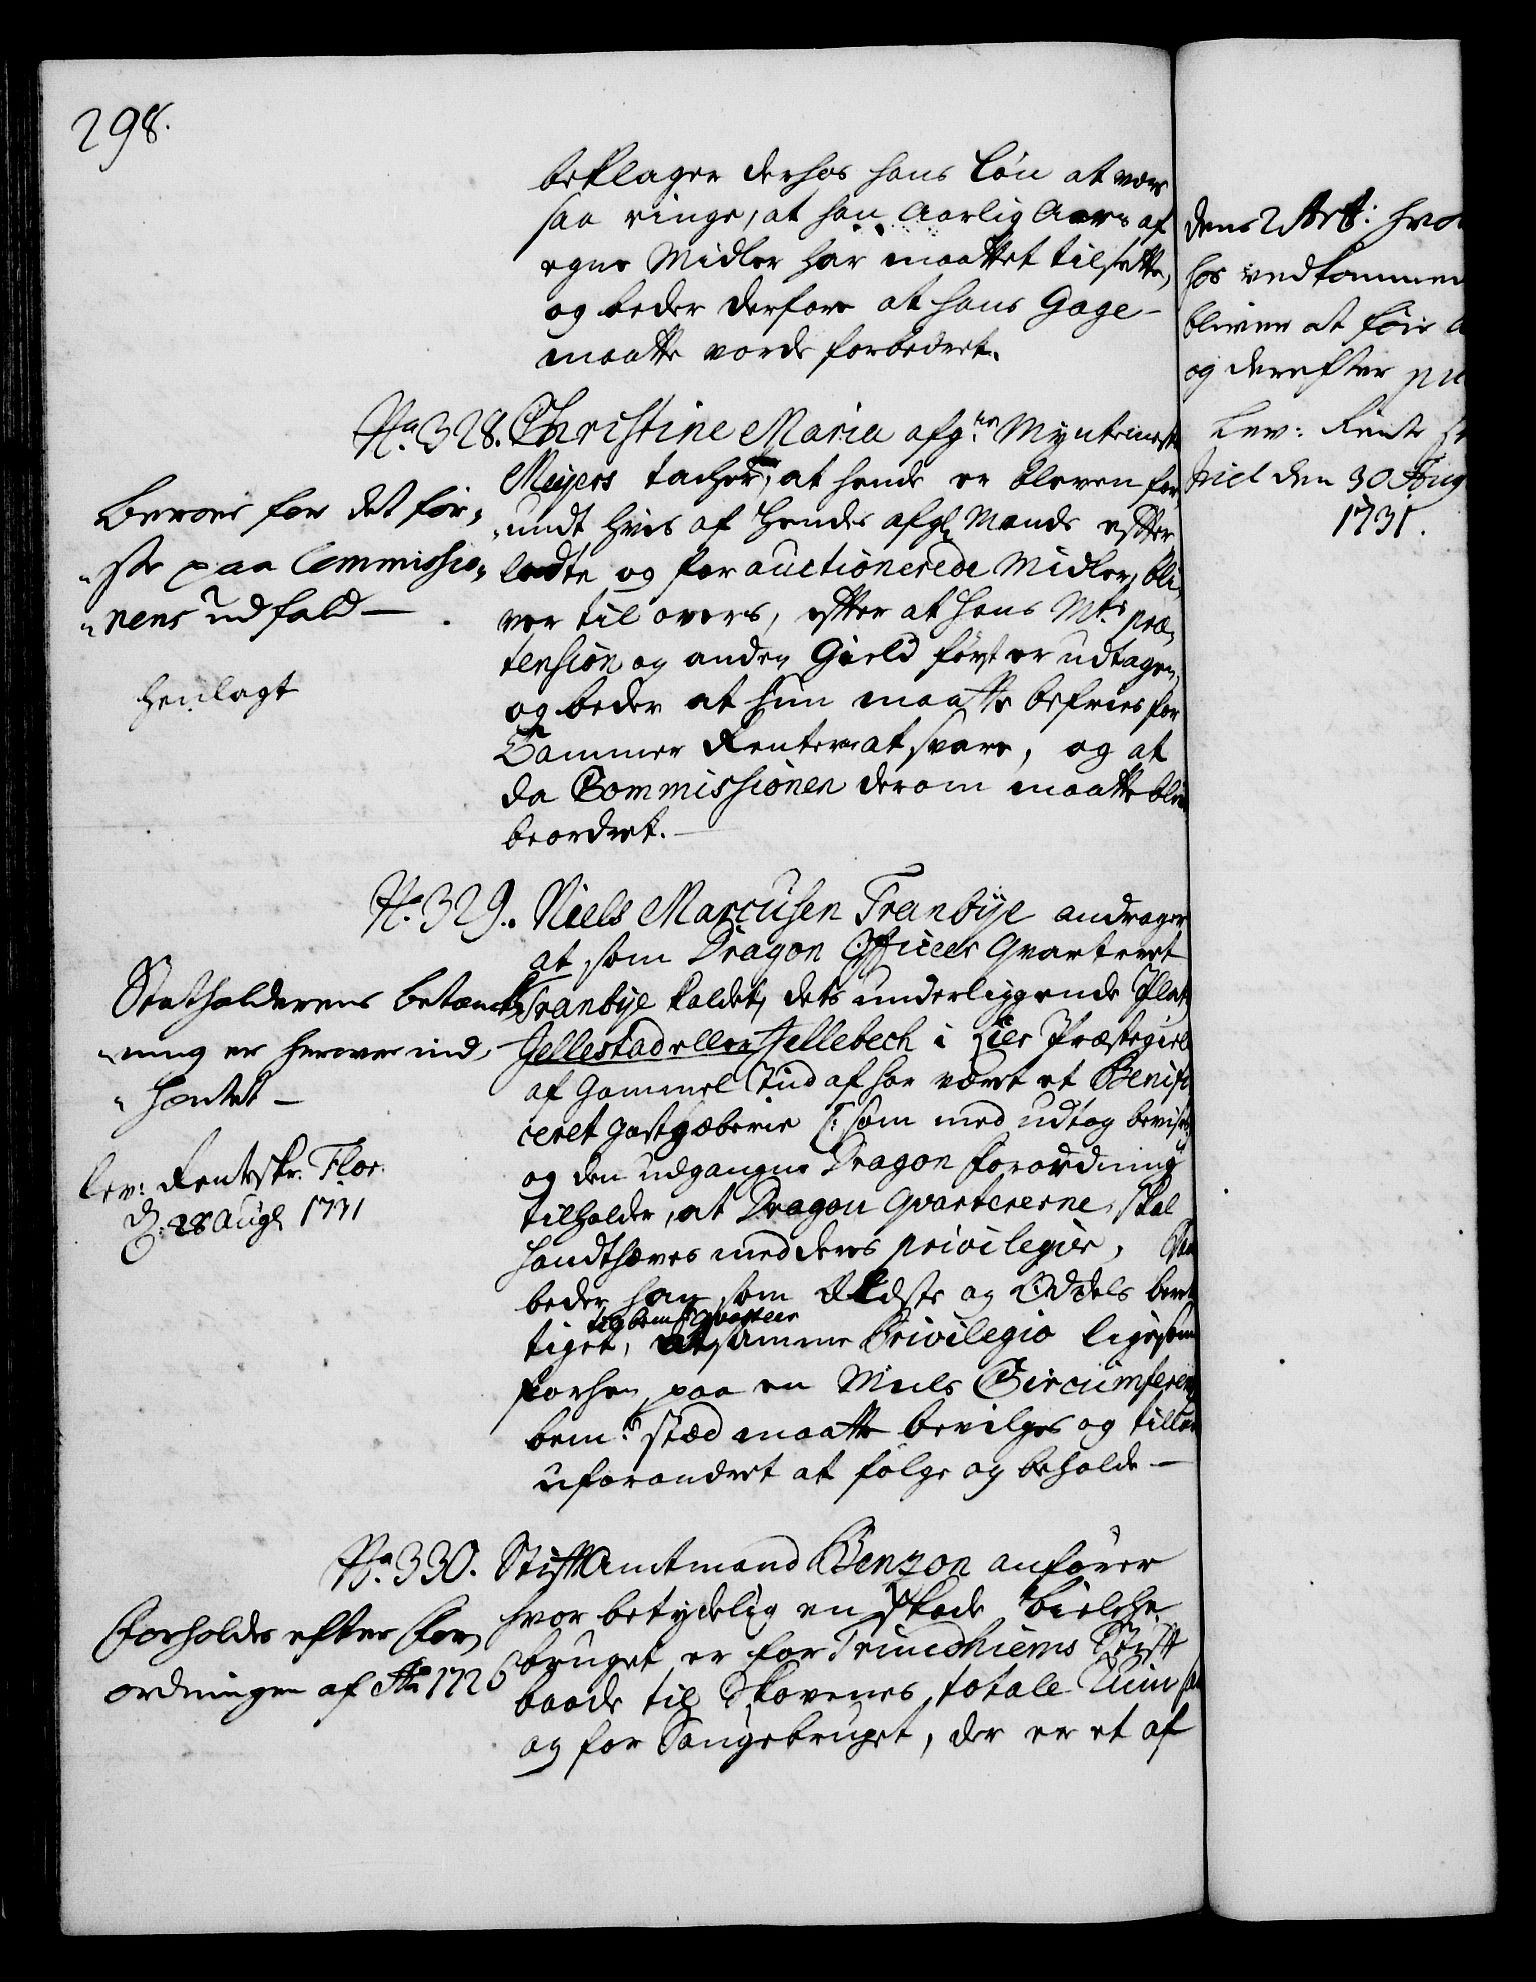 298.
beklager derhos hans Løn at være
saa ringe, at han Aarlig Aars af
egne Midler har maattet tilsette,
og beder derfore at hans Gage
maatte vorde forbedret.
No. 328. Christine Maria afg:ne Myntemest
Meyers tacher, at hende er bleven for
undt hvis af Hendes afgl Mands efter
ladte og forauctionerede Midler, bli,
ver til overs, efter at Hans Mts præ,
tension og anden Gield først er udtagen,
og beder at hun maatte befries for
Cammer Renterne at svare, og at
da Commissionen derom maatte blive
beordret.
Beroer for det før,
"ste paa Commissio,
"nens udfald —
henlagt
No. 329. Niels Marcusen Tranbÿe andrager
at som Dragon Officeer Qvarteret
Tranbÿe kaldet, dets underliggende Plats
Jellestad eller Jellebech i Lier Præstegield
af Gammel Tiid af har været et Benifi
ceret Gastgæberie /: som med udtog bevises
og den udgangne Dragon Forordning
tilholder, at Dragon Qvartererne skal
handthæves med deres privilegier,
beder han som Eldste og Oddels beret
tiget, at samme Privilegio ligesom
til bem:te Qvarteer
forhen paa en Miils Circumferen
bem:te stæd maatte bevilges og tillades
uforandret at følge og beholde —
Statholderens betænk,
"ning er herover ind,
"hentet —
Lev: Renteskr. Flor.
d: 28 Augl 1731
No. 330. Stiftamtmand Benzon anfører
hvor betydelig en skade Bielche
bruget er for Trundhiems Stift
baade til Skovenes totale Ruin
og for Saugebruget, der er et af
Forholdes efter For,
ordningen af Ao 1726
dens 2 Art: hvor
hos vedkommen
bliver at
og derefter
Lev: Rente
piel den 30 Aug
1731.